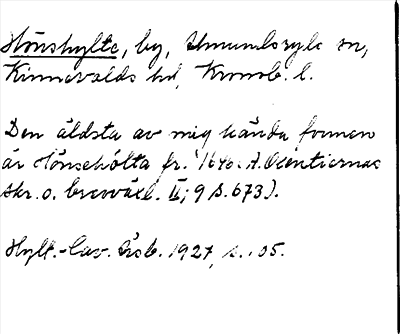 Hönshylte, by, Urmundsryds sn,
Kinnevalds hd, Kronob. l.
Den äldsta av mig kända formen
är Hönsehólta fr. 1646. A. Oxentiernas
skr. o. brevväxl. II; 9 s. 673).
Hylt.-Cav. Årsb. 1927, s. 105.